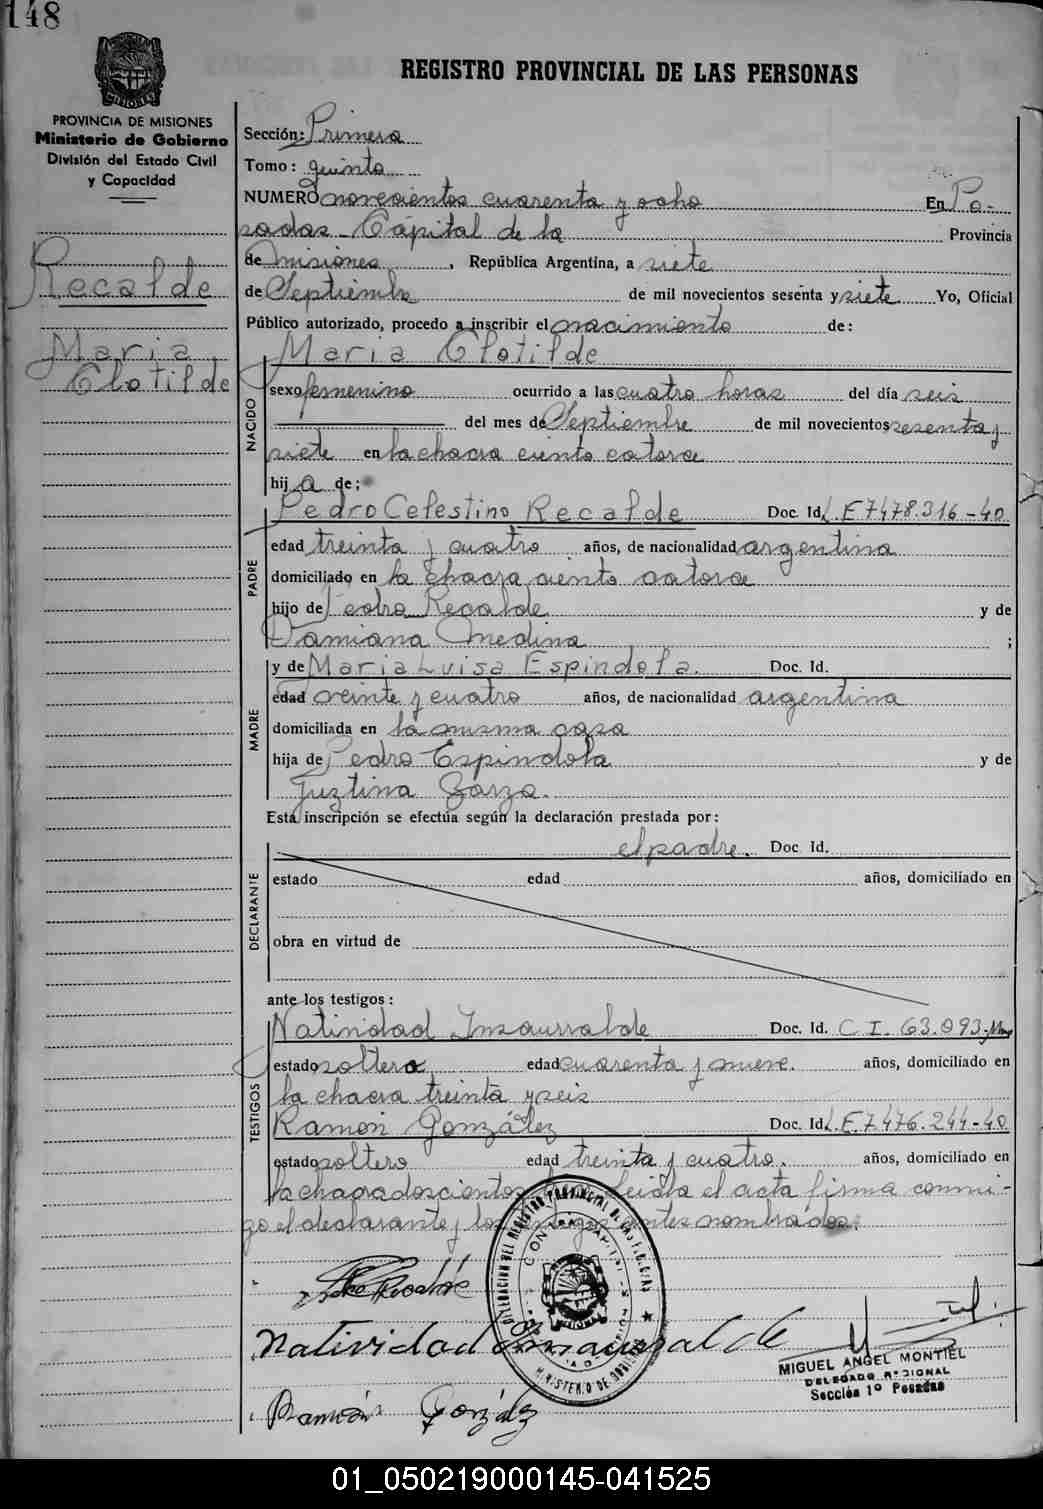 148
REGISTRO PROVINCIAL DE LAS PERSONAS
PROVINCIA DE MISIONES
Ministerio de Gobierno
División del Estado Civil
y Capacidad
Recalde
Maria
Clotilde
Sección: Primera
Tomo: quinto
NUMERO novecientos cuarenta y ocho En Po-
sadas Capital de la Provincia
de Misiones, República Argentina, a siete
de Septiembre de mil novecientos sesenta y siete Yo, Oficial
Público autorizado, procedo a inscribir el nacimiento de:
Maria Clotilde
NACIDO
sexo femenino ocurrido a las cuatro horas del día seis
del mes de Septiembre de mil novecientos sesenta y
siete en la chacra ciento catorce
hij a de:
Pedro Celestino Recalde Doc. Id. L.E 7478.316-40
PADRE
edad treinta y cuatro años, de nacionalidad argentina
domiciliado en la chacra ciento catorce
hijo de Pedro Recalde y de
Damiana Medina ;
y de Maria Luisa Espindola. Doc. Id.
MADRE
edad veinte y cuatro años, de nacionalidad argentina
domiciliada en la misma casa
hija de Pedro Espindola y de
Juztina Zarza.
Esta inscripción se efectúa según la declaración prestada por:
el padre. Doc Id.
DECLARANTE
estado edad años, domiciliado en
obra en virtud de
ante los testigos:
Natividad Insaurralde Doc. Id. C I. 63.093
TESTIGOS
estado soltero edad cuarenta y nueve. años, domiciliado en
la chacra treinta y seis
Ramón González Doc. Id. L.E. 7.476.244-40
estado soltero edad treinta y cuatro. años, domiciliado en
la chacra doscientos leida el acta firma conmi-
go el declarante y los testigos antes nombrados.
Recalde
Natividad Insaurralde
MINISTERIO DE GOBIERNO
MIGUEL ANGEL MONTIEL
DELEGADO
Sección 1º Posadas
Ramón González
01_050219000145-041525